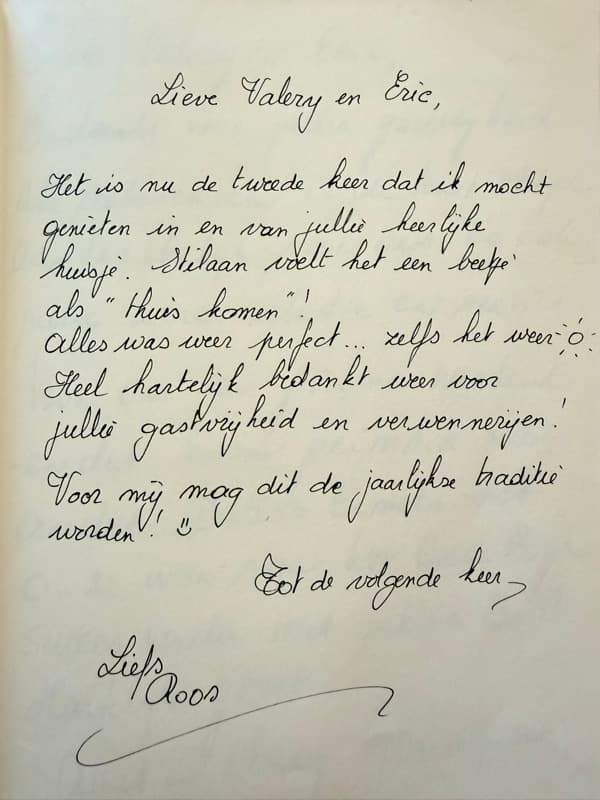 Lieve Valery en Eric,
Het is nu de tweede keer dat ik mocht
genieten in en van jullie heerlijke
huisje. Stilaan voelt het een beetje
als "thuis komen"!
Alles was weer perfect... zelfs het weer
Heel hartelijk bedankt weer voor
jullie gastvrijheid en verwennerijen!
Voor mij mag dit de jaarlijkse traditie
worden!
Tot de volgende keer
Liefs
Roos